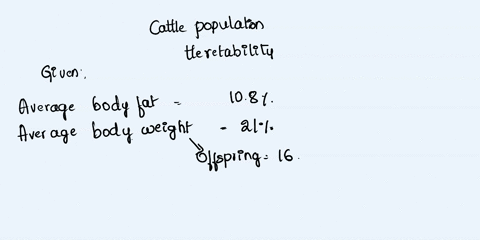 Cattle population
Heretability
Given:
Average body fat = 10.8%.
Average body weight = 21%
Offspring = 16.